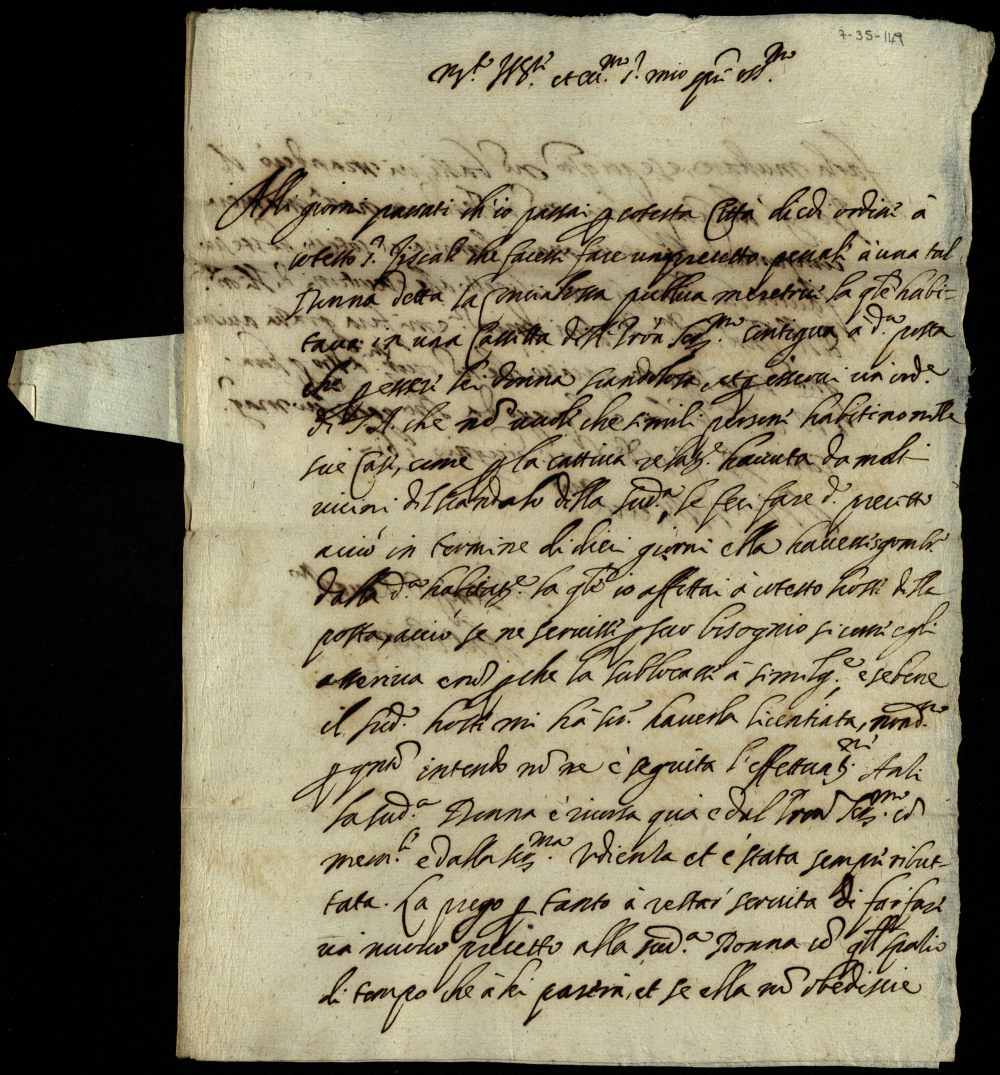 7-35-149
M.to Ill.re et ecc.mo S.r mio sig.r oss.mo
Alli giorni passati ch'io passai p cotesta Città diedi ordine à
cotesto S.r fiscale che facessi fare un precetto penale à una tal
Donna detta la publica meretrice la qle habi-
tava in una Casetta del Pron Ser.mo contigua a d.a posta
che p essere lei donna scandolosa, et p esserci un ord.e
di S.A. che nõ vuole che simili persone habitino nelle
sue Case, come p la cattiva relaz.e havuta da molti
vicini del scandalo della sud.a, le feci fare d.o precetto
acciò in termine di dieci giorni ella havesse sgombr.
dalla d.a habitaz.e la qle io affittai à cotesto hoste della
posta, acciò se ne servisse p suo bisognio si come egli
asseriva e nõ p che la sublocasse à simil g.e, e se bene
il sud.o hoste mi hà sc.to haverla licentiata, nond.no
p q.nto intendo nõ ne è seguita l'effettuaz.ne Anzi
la sud.a Donna è ricorsa qua e dal Pron Ser.mo cõ
mem.le e dalla Ser.ma Udienza et è stata sempre ribut-
tata. La prego p tanto à restar servita di far fare
un nuovo precetto alla sud.a Donna cõ qll spatio
di tempo che à lei parerà, et se ella nõ obedisce